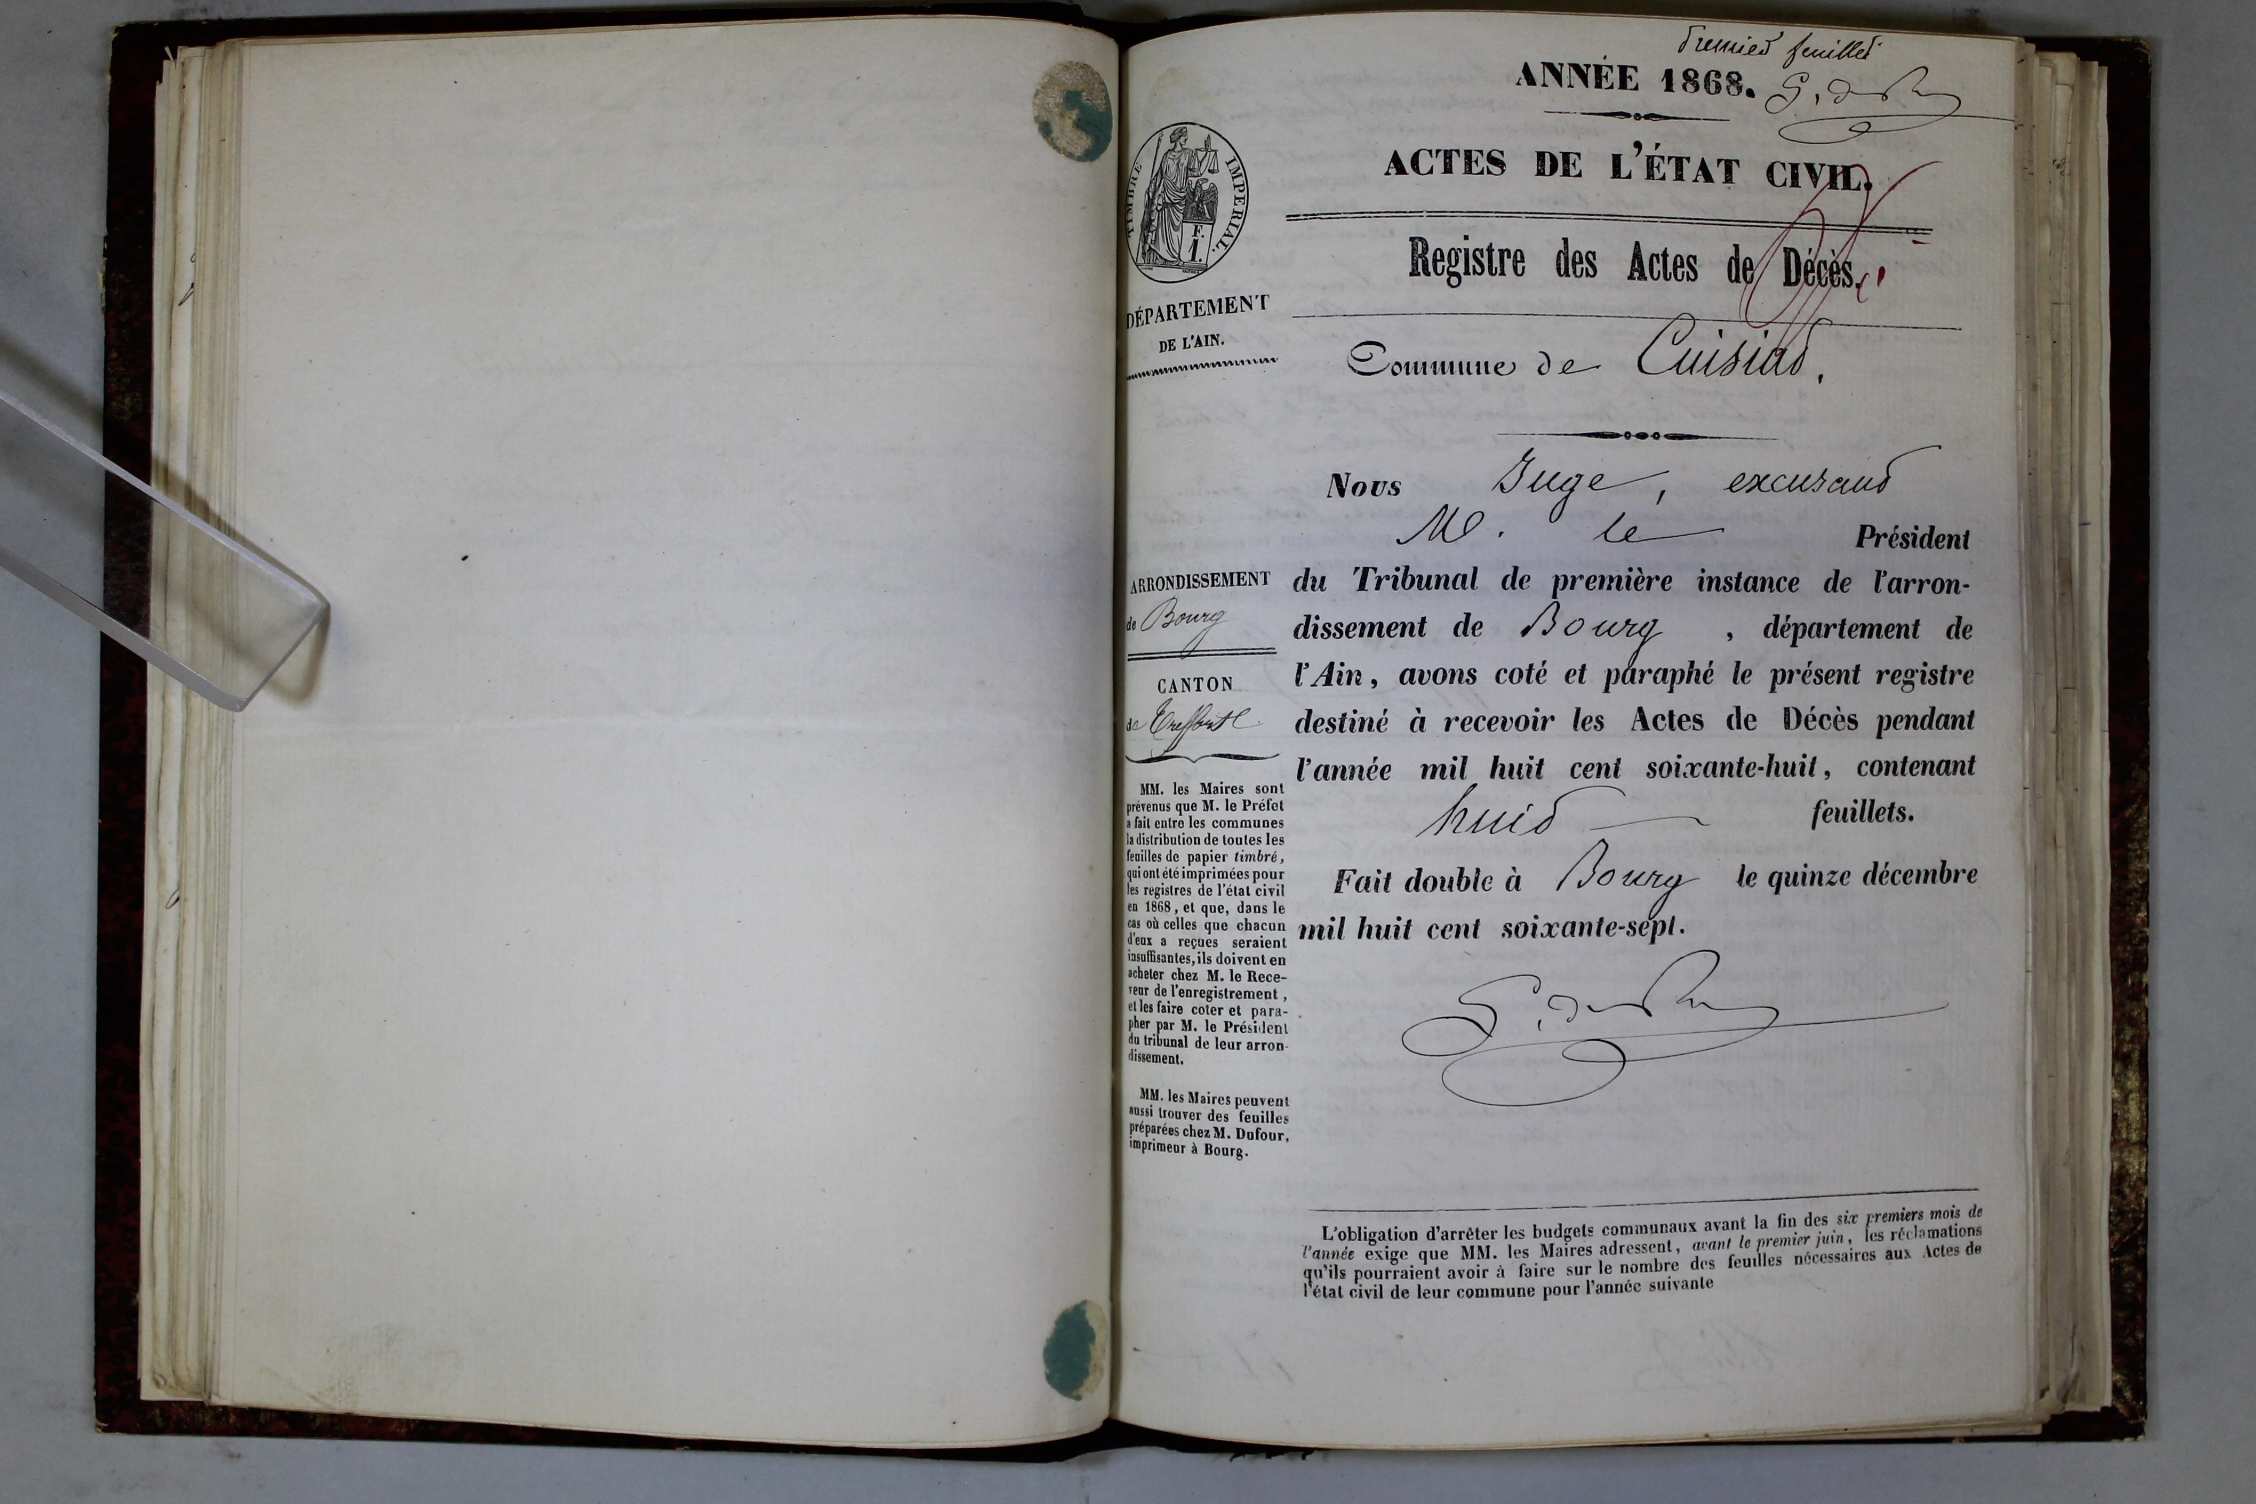 premier feuillet
ANNÉE 1868.
TIMBRE IMPÉRIAL.
F.
1.
ACTES DE L'ÉTAT CIVIL.
Registre des Actes de Décès.
DÉPARTEMENT
DE L'AIN.
Commune de Cuisiat.
Nous Juge, excusant
M. le Président
ARRONDISSEMENT
de Bourg
CANTON
de Treffort
du Tribunal de première instance de l'arron-
dissement de Bourg, département de
l'Ain, avons coté et paraphé le présent registre
destiné à recevoir les Actes de Décès pendant
l'année mil huit cent soixante-huit, contenant
huit feuillets.
Fait double à Bourg le quinze décembre
mil huit cent soixante-sept.
MM. les Maires sont
prévenus que M. le Préfet
a fait entre les communes
la distribution de toutes les
feuilles de papier timbré,
qui ont été imprimées pour
les registres de l'état civil
en 1868, et que, dans le
cas où celles que chacun
d'eux a reçues seraient
insuffisantes, ils doivent en
acheter chez M. le Rece-
veur de l'enregistrement,
et les faire coter et para-
pher par M. le Président
du tribunal de leur arron-
dissement.
MM. les Maires peuvent
aussi trouver des feuilles
préparées chez M. Dufour,
imprimeur à Bourg.
L'obligation d'arrêter les budgets communaux avant la fin des six premiers mois de
l'année exige que MM. les Maires adressent, avant le premier juin, les réclamations
qu'ils pourraient avoir à faire sur le nombre des feuilles nécessaires aux Actes de
l'état civil de leur commune pour l'année suivante